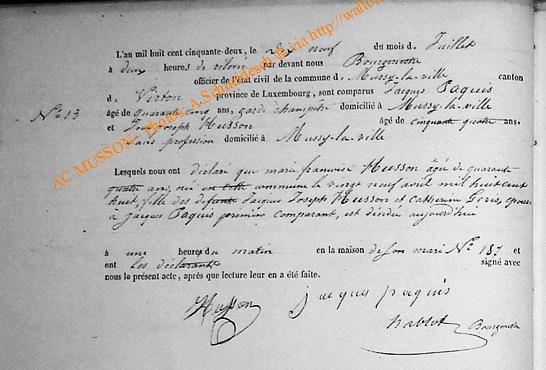 L'an mil huit cent cinquante-deux, le neuf du mois de Juillet
à deux heures de relevée par devant nous Bourgmestre
officier de l'état civil de la commune de Mussy-la-ville canton
de Virton province de Luxembourg, sont comparus Jacques Paquis
N° 13
âgé de quarante cinq ans, garde champetre domicilié à Mussy-la-ville
et Jean Joseph Husson âgé de cinquante quatre ans,
sans profession domicilié à Mussy-la-ville
Lesquels nous ont déclaré que marie françoise Husson agée de quarante
quatre ans, née en cette commune le vingt neuf avril mil huit cent
huit, fille des defunts Jacques Joseph Husson et Catherine epouse
à Jacques Paquis premier comparant, est décédée aujourd'hui
à une heures du matin en la maison de son mari N° 187 et
ont les déclarants signé avec
nous le présent acte, après que lecture leur en a été faite.
Husson jacques paquis
Bourgmestre
AC MUSSON - Photos A.Schnadesch @ via http://wallo